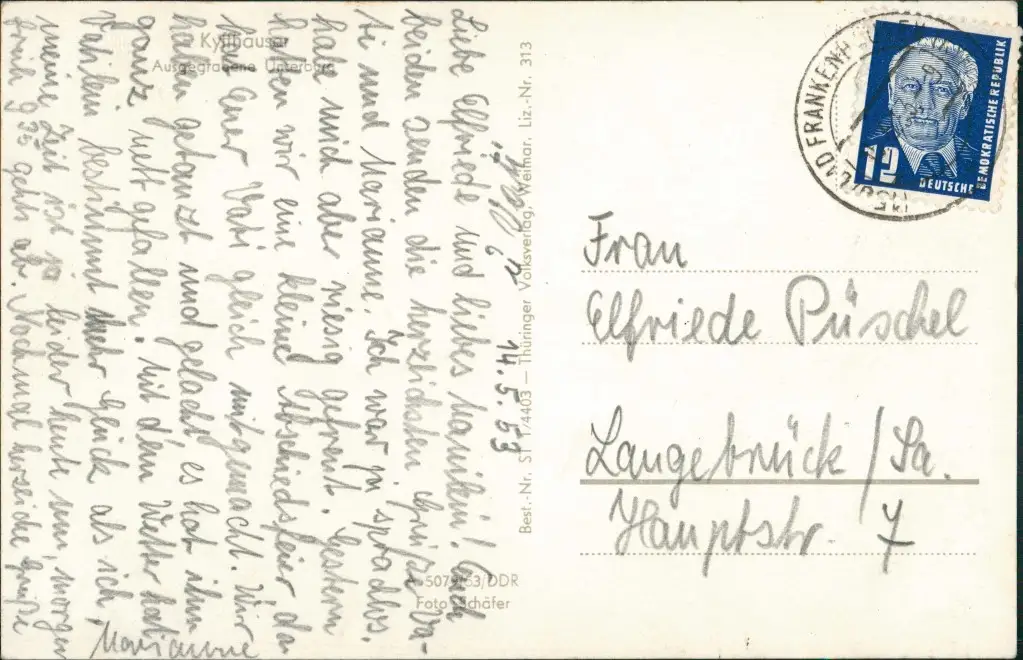 Kyffhäuser
Ausgegrabene Unterburg
Liebe Elfriede und liebes Manikein! Euch
beiden senden die herzlichsten Grüße Va-
ti und Marianne. Ich war ja sprachlos,
habe mich aber riesig gefreut. Gestern
haben wir eine kleine Abschiedsfeier da
hat Euer Vati gleich mitgemacht. Wir
haben getanzt und gelacht es hat ihm
ganz nett gefallen. Mit dem Wetter hat
Vatilein bestimmt mehr Glück als ich,
meine Zeit ist ja leider heute um, morgen
früh 9 35 gehts ab. Nochmal herzliche Grüße
Marianne
u. Vati
14. 5. 53
Best.-Nr. ST 1/4403 — Thüringer Volksverlag, Weimar, Liz.-Nr. 313
A 5079/53/DDR
Foto: Schäfer
BAD FRANKENHAUSEN
12
DEUTSCHE
DEMOKRATISCHE REPUBLIK
Frau
Elfriede Püschel
Langebrück / Sa.
Hauptstr. 7